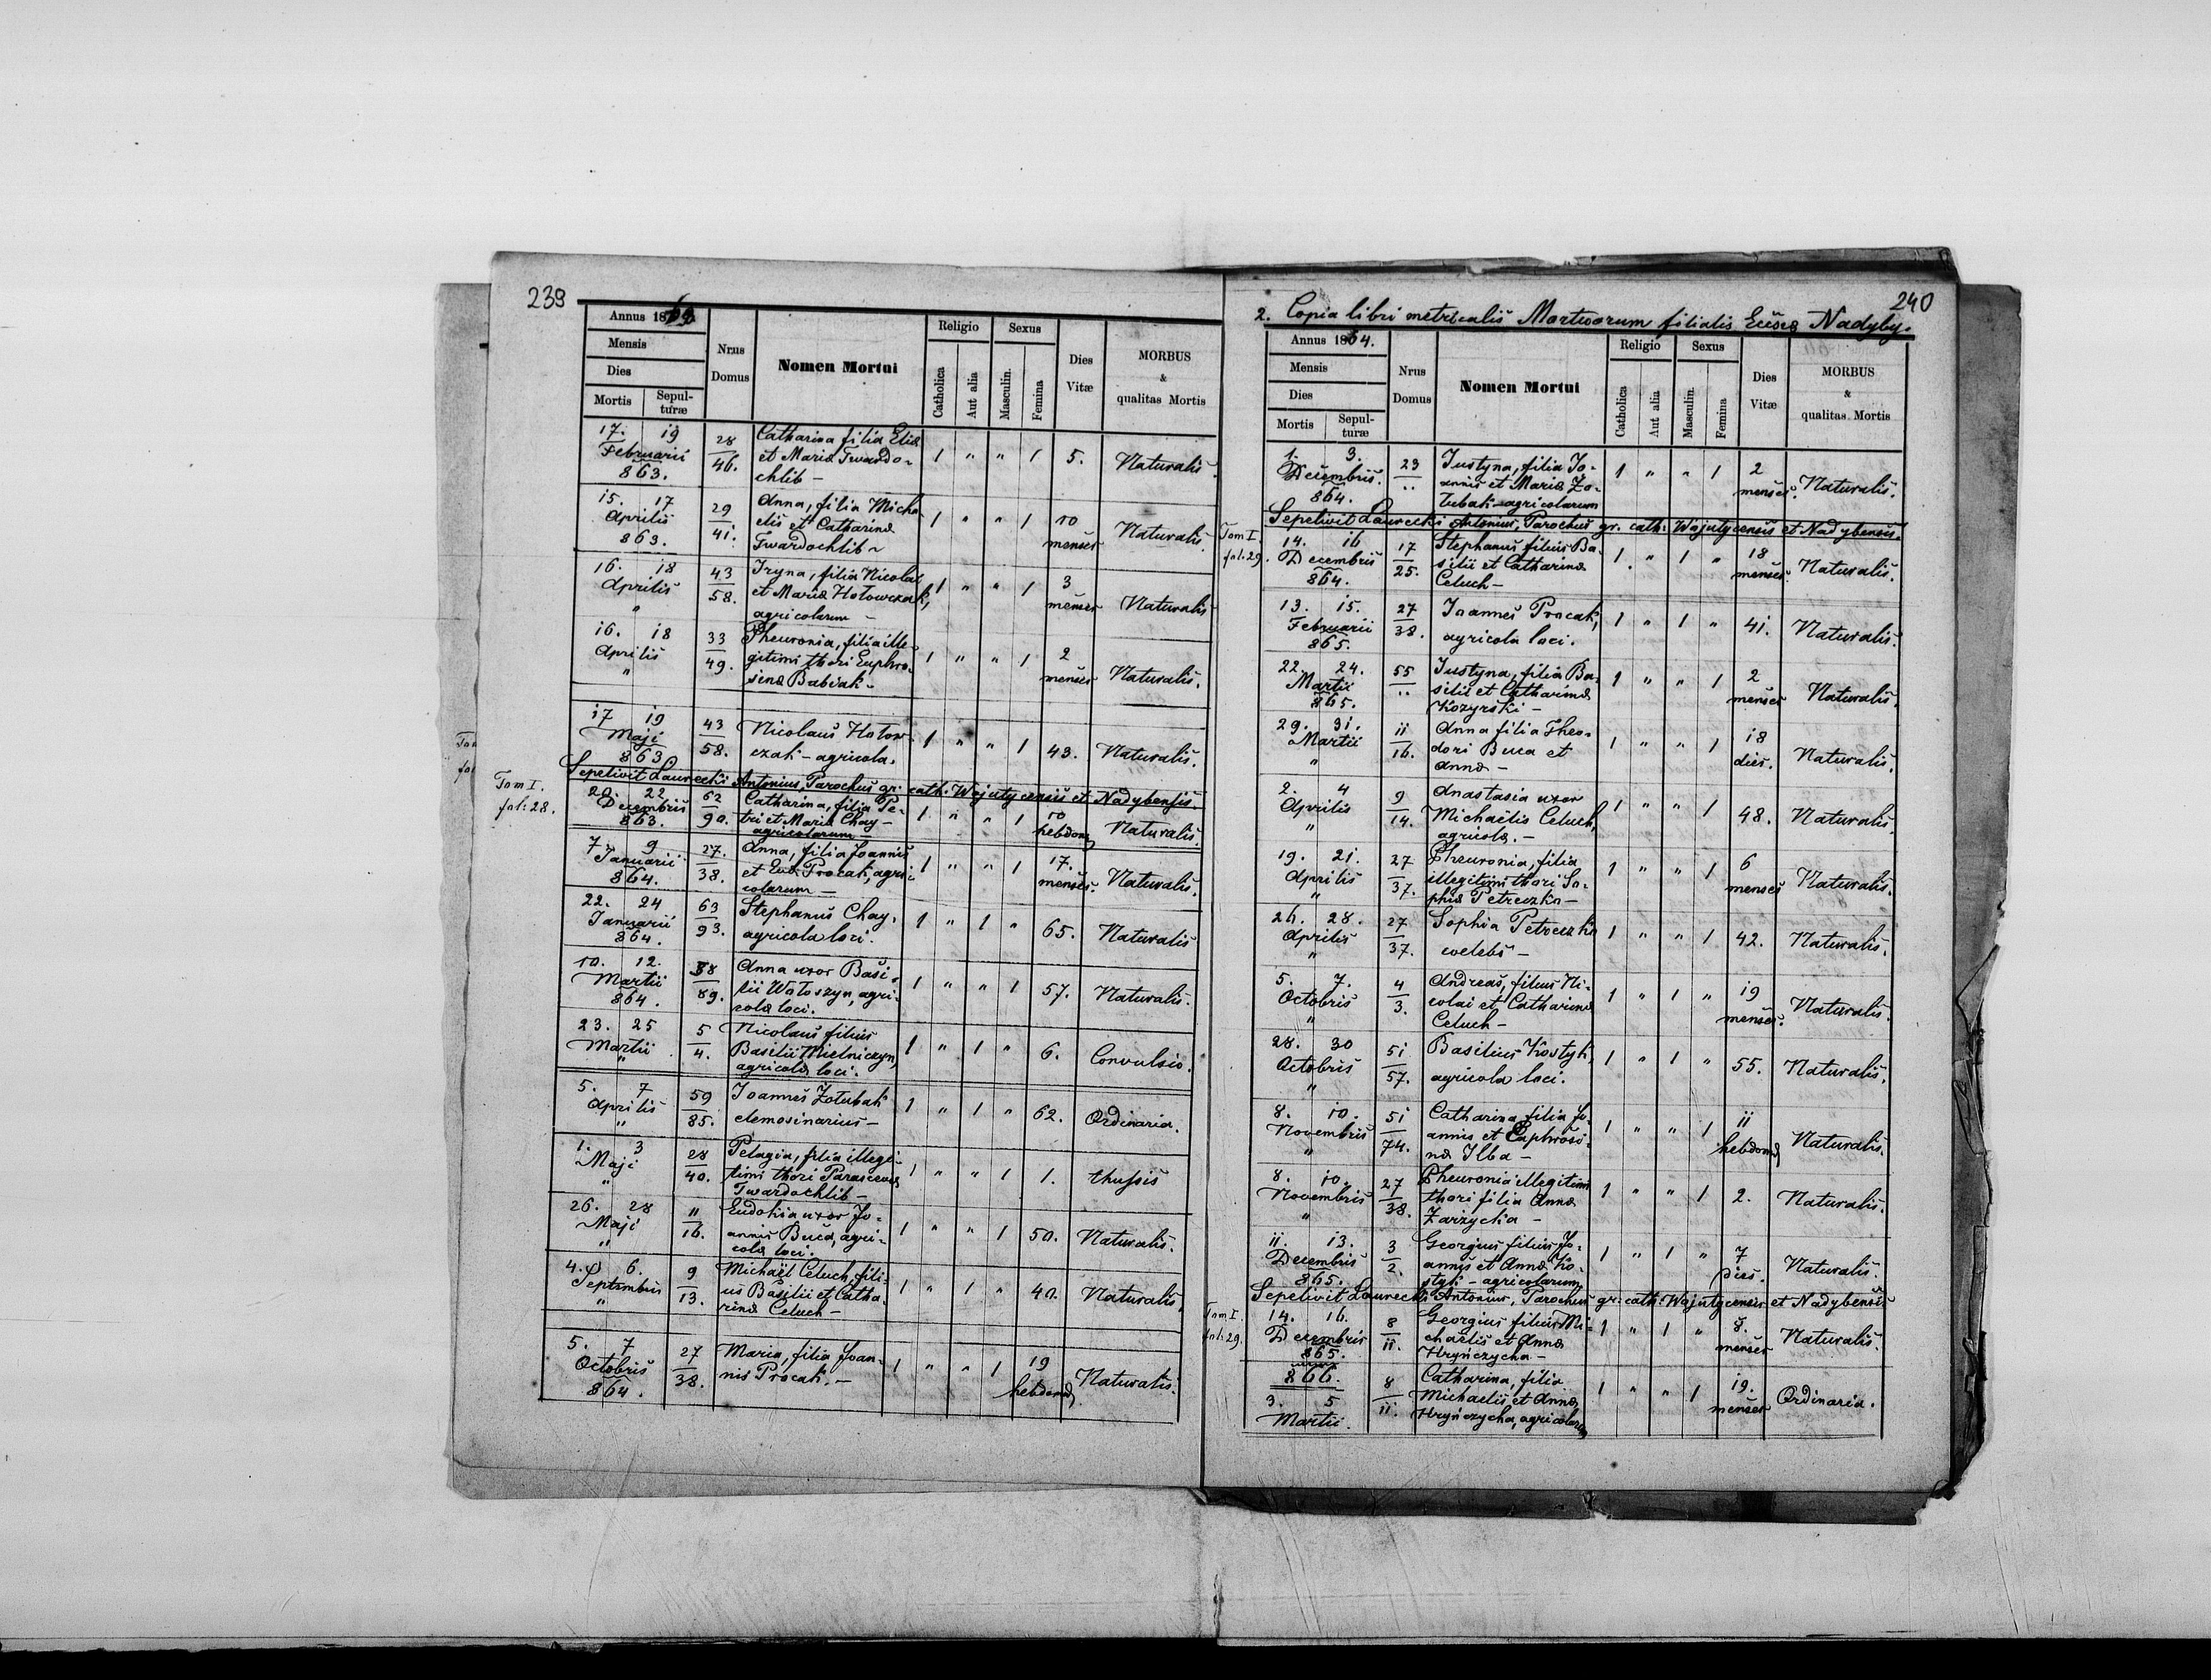 239
Annus 1863.
Mensis
Dies
Mortis
Sepulturæ
Nrus Domus
Nomen Mortui
Religio
Catholica
Aut alia
Sexus
Masculin.
Femina
Dies Vitæ
MORBUS & qualitas Mortis
17. 19 Februarii 863. 28/46. Catharina filia Eliæ et Mariæ Twardochlib – 1 " " 1 5. Naturalis.
15. 17 Aprilis 863. 29/41. Anna, filia Michaelis et Catharinæ Twardochlib – 1 " " 1 10 menses Naturalis.
16. 18 Aprilis " 43/58. Iryna, filia Nicolai et Mariæ Hołowczak, agricolarum – 1 " " 1 3 menses Naturalis
16. 18 Aprilis " 33/49. Pheuronia, filia illegitimi thori Euphrosinæ Babiak – 1 " " 1 2 menses Naturalis.
17 19 Maji 863 43/58. Nicolaus Hołowczak – agricola. 1 " " 1 43. Naturalis.
Sepelivit Laurecki Antonius, Parochus gr. cath. Wojutycensis et Nadybensis.
Tom I. fol: 28.
20. 22 Decembris 863. 62/90. Catharina, filia Petri et Mariæ Chay – agricolarum – 1 " " 1 10 hebdom Naturalis.
7. 9 Januarii 864. 27./38. Anna, filia Joannis et Eud. Procak, agricolarum – 1 " " 1 17. menses. Naturalis.
22. 24 Januarii 864. 63/93. Stephanus Chay, agricola loci. 1 " 1 " 65. Naturalis
10. 12. Martii 864. 58/89. Anna uxor Basilii Wołoszyn, agricolæ loci. 1 " " 1 57. Naturalis.
23. 25 Martii " 5/4. Nicolaus filius Basilii Mielniczyn, agricolæ loci. 1 " 1 " 6. Convulsio.
5. 7 Aprilis " 59/85. Joannes Zołubak elemosinarius – 1 " 1 " 62. Ordinaria.
1. 3 Maji " 28/40. Pelagia, filia illegitimi thori Parascevæ Twardochlib – 1 " " 1 1. thussis
26. 28 Maji " 11/16. Eudokia uxor Joannis Buca, agricolæ loci. 1 " " 1 50. Naturalis.
4. 6. Septembris " 9/13. Michaël Celuch, filius Basilii et Catharinæ Celuch – 1 " 1 " 40. Naturalis.
5. 7 Octobris 864. 27/38. Maria, filia Joannis Procak. – 1 " " 1 19 hebdomad Naturalis.
240
2. Copia libri metricalis Mortuorum filialis Eccsæ Nadyby.
Annus 1864.
Mensis
Dies
Mortis
Sepulturæ
Nrus Domus
Nomen Mortui
Religio
Catholica
Aut alia
Sexus
Masculin.
Femina
Dies Vitæ
MORBUS & qualitas Mortis
1. 3. Decembris. 864. 23/.. Justyna, filia Joannis et Mariæ Zołubak – agricolarum 1 " " 1 2 menses. Naturalis.
Sepelivit Laurecki Antonius, Parochus gr. cath. Wojutycensis et Nadybensis.
Tom I. fol: 29.
14. 16 Decembris 864. 17/25. Stephanus filius Basilii et Catharinæ Celuch – 1. " 1 " 18 menses. Naturalis.
13. 15. Februarii 865. 27/38. Joannes Procak, agricola loci. 1 " 1 " 41. Naturalis.
22. 24. Martii 865. 55/.. Justyna, filia Basilii et Catharinæ Kozyrski – 1 " " 1 2 menses Naturalis.
29. 31. Martii " 11/16. Anna filia Theodori Buca et Annæ – 1 " " 1 18 dies. Naturalis.
2. 4 Aprilis " 9/14. Anastasia uxor Michaëlis Celuch, agricolæ. – 1 " " 1 48. Naturalis.
19. 21. Aprilis " 27/37. Pheuronia, filia illegitimi thori Sophiæ Petreczka – 1 " " 1 6 menses Naturalis.
26. 28. Aprilis " 27/37. Sophia Petreczka coelebs – 1 " " 1 42. Naturalis.
5. 7. Octobris " 4/3. Andreas, filius Nicolai et Catharinæ Celuch – 1 " 1 " 19 menses. Naturalis.
28. 30 Octobris " 51/57. Basilius Kostyk, agricola loci. 1 " 1 " 55. Naturalis.
8. 10. Novembris " 51/74. Catharina, filia Joannis et Euphrosinæ Ilba – 1 " " 1 11 hebdomad Naturalis.
8. 10. Novembris " 27/38. Pheuronia illegitimi thori filia Annæ Zarzycka – 1 " " 1 2. Naturalis.
11. 13. Decembris 865. 3/2. Georgius filius Joannis et Annæ Kostyk – agricolarum 1 " 1 " 7 dies. Naturalis.
Sepelivit Laurecki Antonius, Parochus gr. cath. Wojutycensis et Nadybensis
Tom I. fol: 29.
14. 16. Decembris 865. 8/11. Georgius filius Michaelis et Annæ Hryńczycha – 1 " 1 " 8. menses Naturalis.
866. 3. 5 Martii. 8/11. Catharina, filia Michaelis et Annæ Hryńczycha, agricolarum 1 " " 1 19. menses Ordinaria.